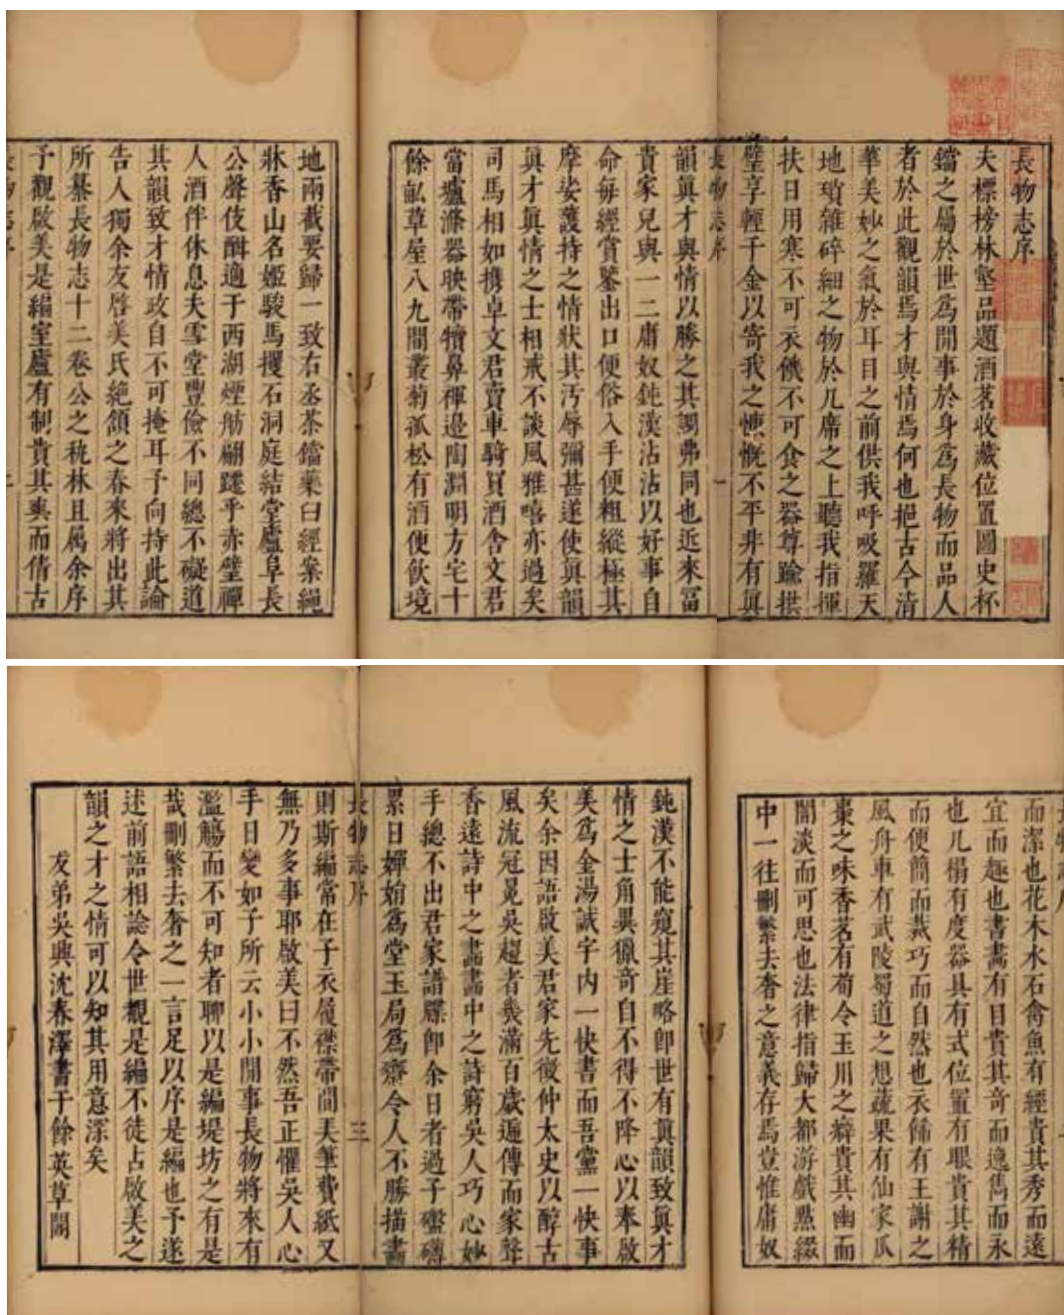 長物志序
夫標榜林壑品題酒茗收藏位置圖史杯
鐺之屬於世爲閒事於身爲長物而品人
者於此觀韻焉才與情焉何也挹古今清
華美妙之氣於耳目之前供我呼吸羅天
地瑣雜碎細之物於几席之上聽我指揮
扶日用寒不可衣饑不可食之器尊踰拱
璧享輕千金以寄我之慷慨不平非有眞
長物志序
一
韻眞才與情以勝之其調弗同也近來富
貴家兒與一二庸奴鈍漢沾沾以好事自
命每經賞鑒出口便俗入手便粗縱極其
摩娑護持之情狀其汚辱彌甚遂使眞韻
眞才眞情之士相戒不談風雅嘻亦過矣
司馬相如攜卓文君賣車騎買酒舍文君
當壚滌器映帶犢鼻褌邊陶淵明方宅十
餘畝草屋八九間叢菊孤松有酒便飲境
地兩截要歸一致右丞茶鐺藥臼經案繩
牀香山名姬駿馬攫石洞庭結堂廬阜長
公聲伎酣適于西湖煙舫翩躚乎赤壁禪
人酒伴休息夫雪堂豐儉不同總不礙道
其韻致才情政自不可掩耳予向持此論
告人獨余友啓美氏絶頷之春來將出其
所纂長物志十二卷公之秇林且属余序
予觀啟美是編室廬有制貴其爽而倩古
而潔也花木水石禽魚有經貴其秀而遠
宜而趣也書畵有目貴其奇而逸雋而永
也几榻有度器具有式位置有眼貴其精
而便簡而裁巧而自然也衣飾有王謝之
風舟車有武陵蜀道之想蔬果有仙家瓜
棗之味香茗有荀令玉川之癖貴其幽而
闇淡而可思也法律指歸大都游戲點綴
中一往刪繁去奢之意義存焉豈惟庸奴
鈍漢不能窺其崖略卽世有眞韻致眞才
情之士角異獵奇自不得不降心以奉啟
美爲金湯誠宇内一快書而吾黨一快事
矣余因語啟美君家先徵仲太史以醇古
風流冠冕吳趨者幾滿百歲遞傳而家聲
香遠詩中之畵畵中之詩窮吳人巧心妙
手總不出君家譜牒卽余日者過子盤礴
累日嬋娟爲堂玉局爲齋令人不勝描畵
長物志序
三
則斯編常在子衣履襟帶間弄筆費紙又
無乃多事耶啟美曰不然吾正懼吳人心
手日變如子所云小小閒事長物將來有
濫觴而不可知者聊以是編堤坊之有是
哉刪繁去奢之一言足以序是編也予遂
述前語相諗令世觀是編不徒占啟美之
韻之才之情可以知其用意深矣
友弟吳興沈春澤書于餘英草閣